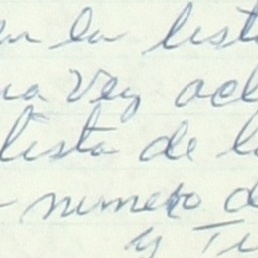 en la lista
una vez acl
lista de l
numero d
y Ti